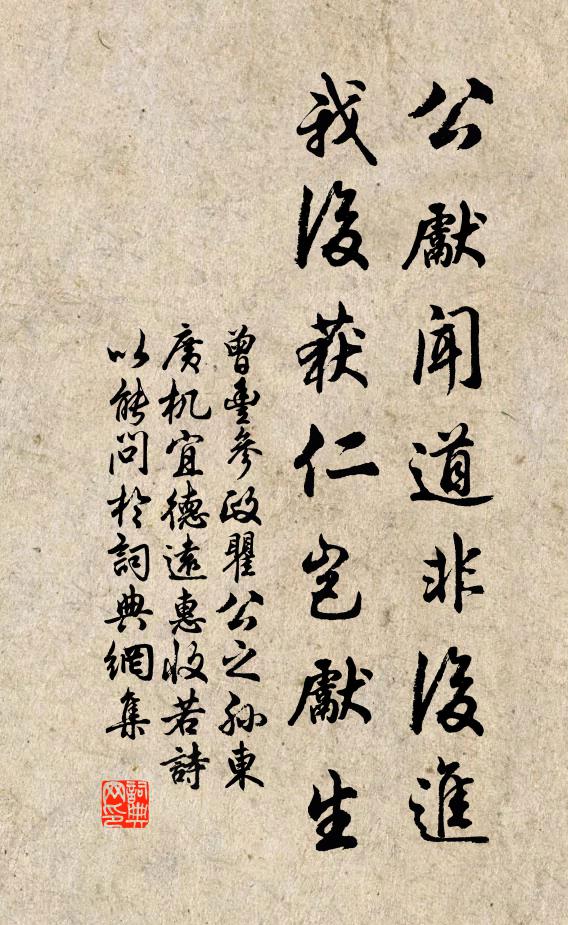 公獻聞道非後進
我後获仁豈獻生
曾豐參政瞿公之孙東
廣机宜德遠惠收若詩
以能問於詞典網集
詞典
网印